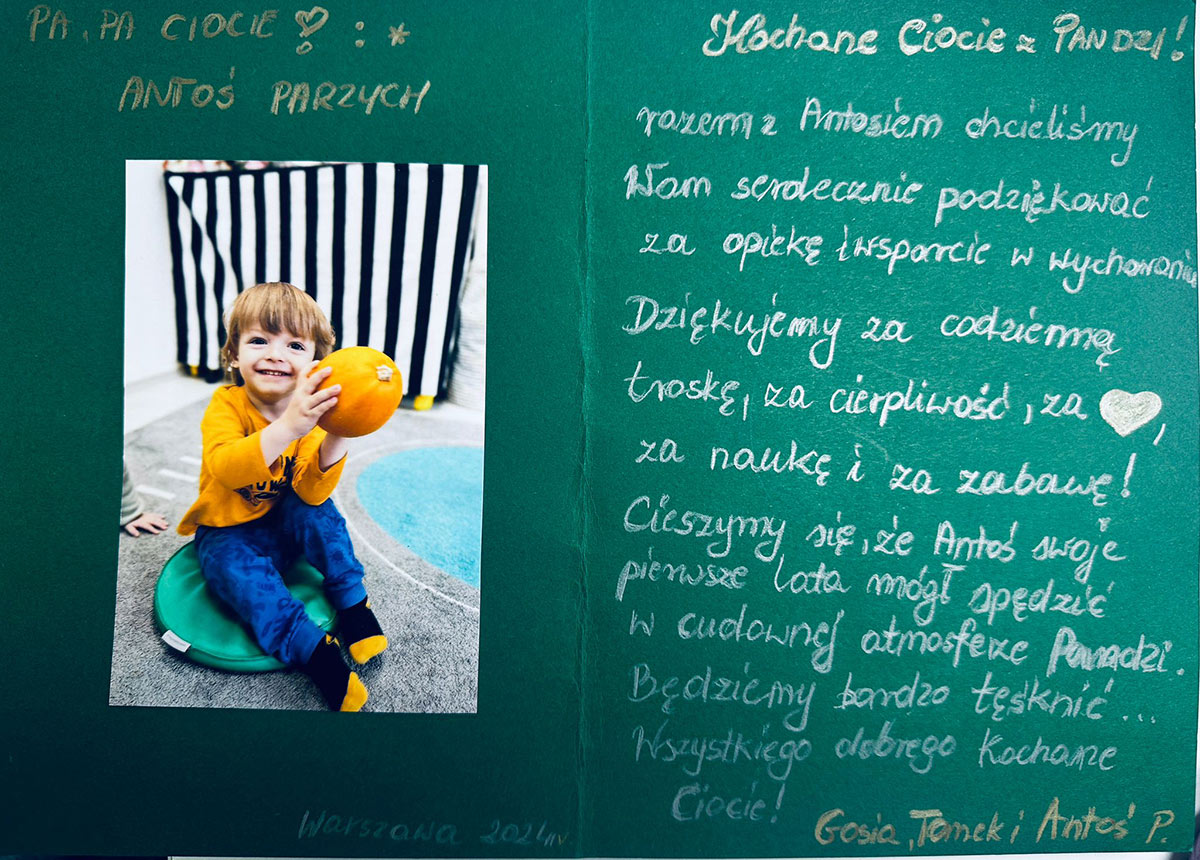 PA, PA CIOCIE ! : *
ANTOŚ PARZYCH
Warszawa 2024
Kochane Ciocie z PANDZI!
razem z Antosiem chcieliśmy
Wam serdecznie podziękować
za opiekę i wsparcie w wychowaniu
Dziękujemy za codzienną
troskę, za cierpliwość, za ♥,
za naukę i za zabawę!
Cieszymy się, że Antoś swoje
pierwsze lata mógł spędzić
w cudownej atmosferze Pandzi.
Będziemy bardzo tęsknić...
Wszystkiego dobrego Kochane
Ciocie!
Gosia, Tomek i Antoś P.